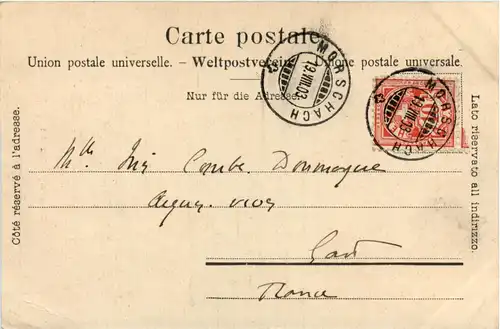 Carte postale.
Union postale universelle. – Weltpostverein. – Unione postale universale.
Nur für die Adresse.
MORSCHACH
19.VIII.03
MORSCHACH
19.VIII.03
Côté réservé à l'adresse.
Lato riservato all indirizzo.
Mlle Combe
Gard
France